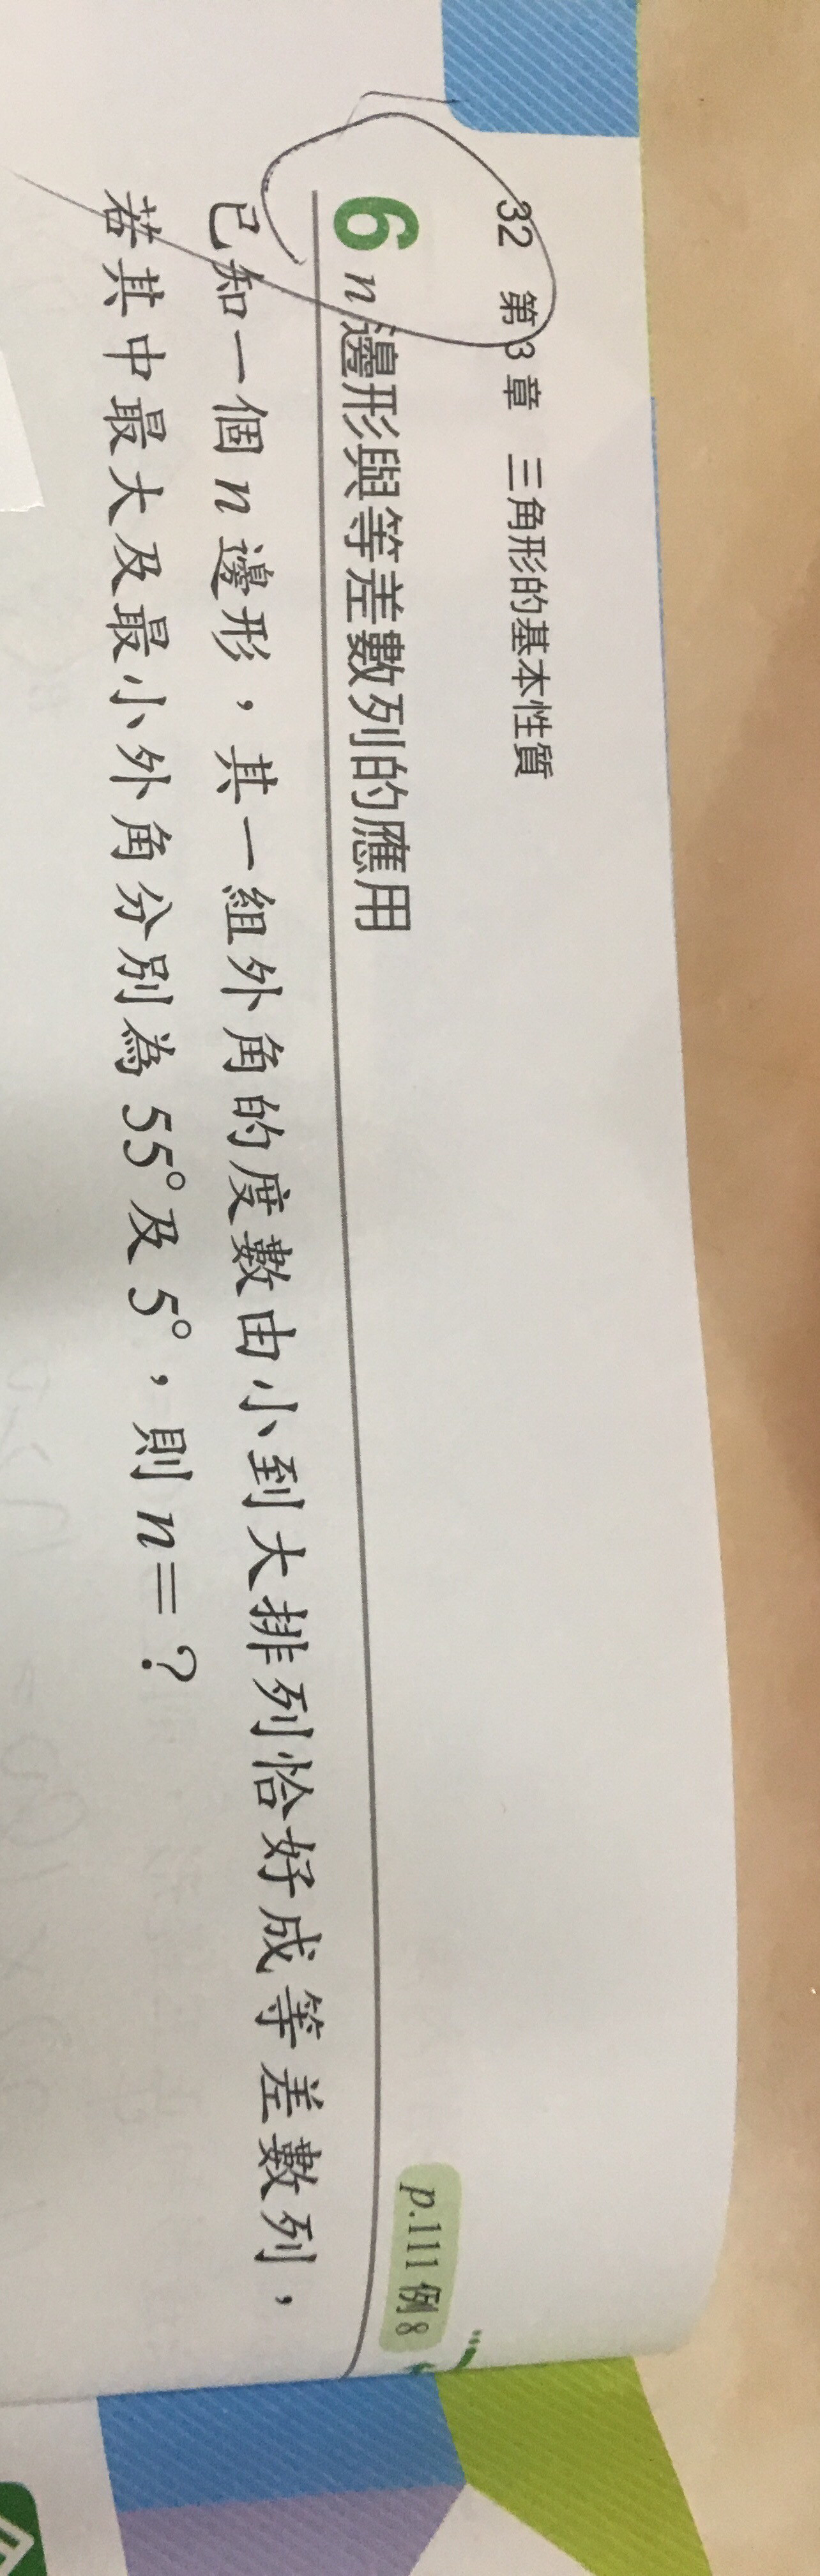 32 第3章 三角形的基本性質
6 n邊形與等差數列的應用
p.111 例8
已知一個n邊形，其一組外角的度數由小到大排列恰好成等差數列，
若其中最大及最小外角分別為55°及5°，則n=？